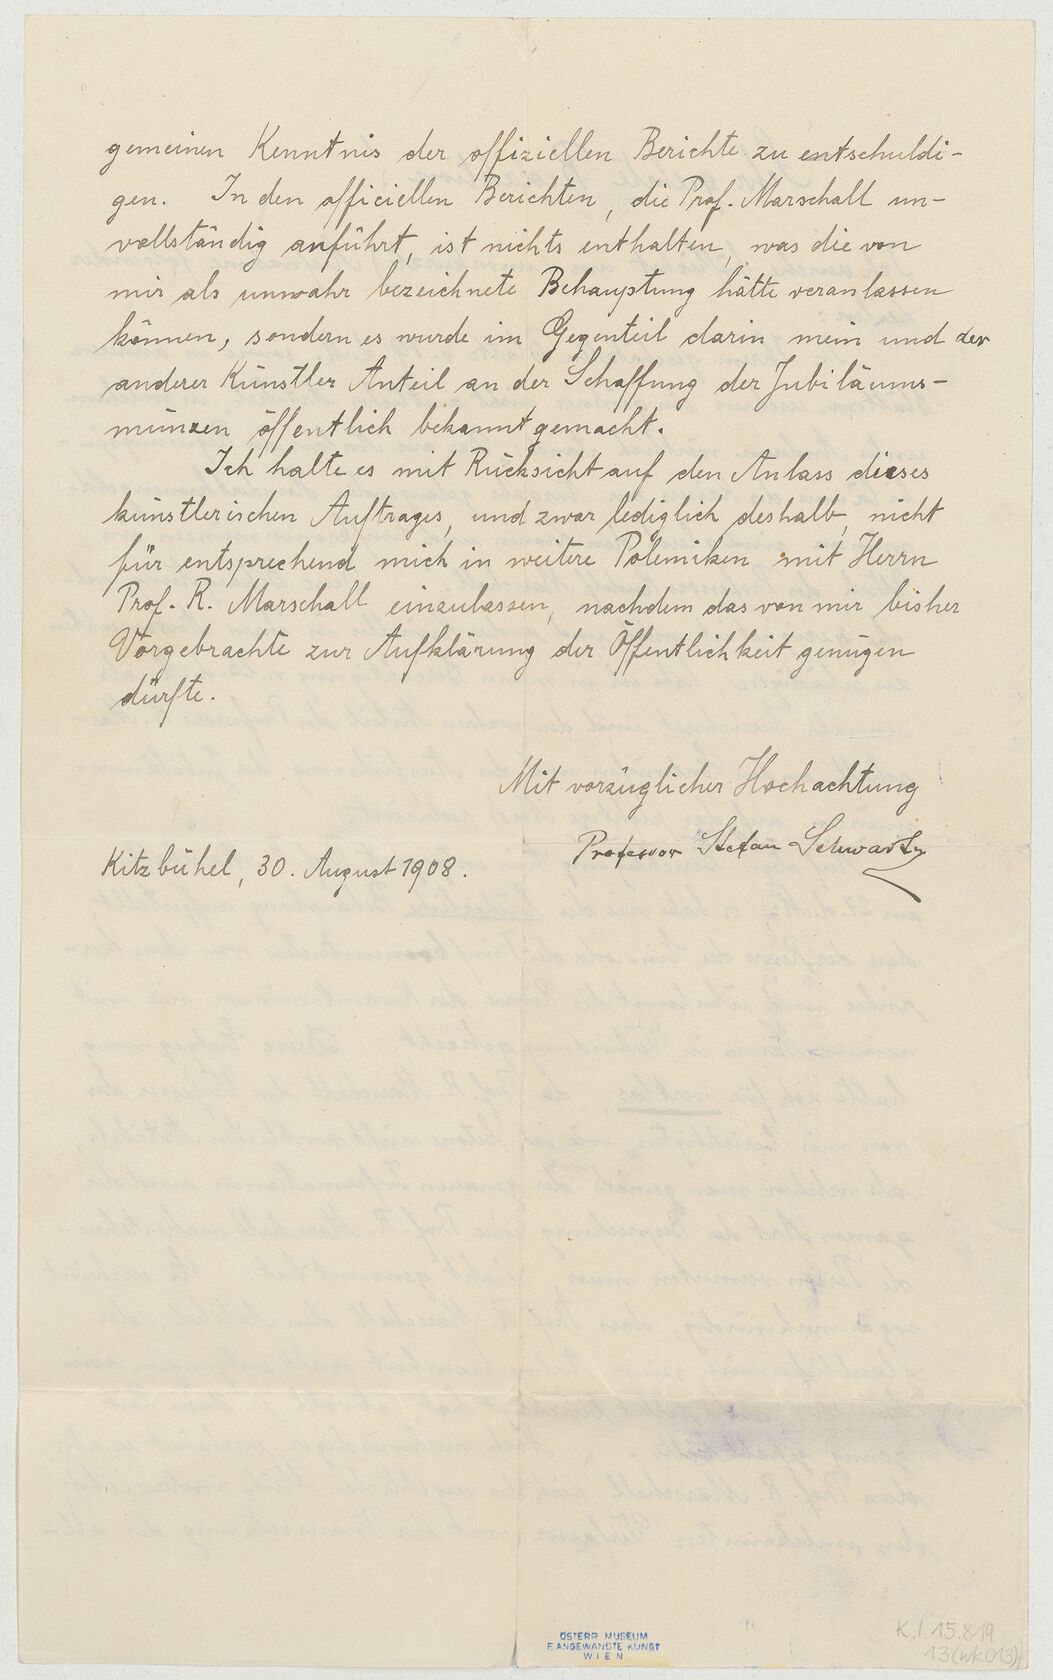 gemeinen Kenntnis der offiziellen Berichte zu entschuldi-
gen. In den officiellen Berichten, die Prof. Marschall un-
vollständig anführt, ist nichts enthalten, was die von
mir als unwahr bezeichnete Behauptung hätte veranlassen
können, sondern es wurde im Gegenteil darin mein und der
anderer Künstler Anteil an der Schaffung der Jubiläums-
münzen öffentlich bekannt gemacht.
Ich halte es mit Rücksicht auf den Anlass dieses
künstlerischen Auftrages, und zwar lediglich deshalb, nicht
für entsprechend mich in weitere Polemiken mit Herrn
Prof. R. Marschall einzulassen, nachdem das von mir bisher
Vorgebrachte zur Aufklärung der Öffentlichkeit genügen
dürfte.
Mit vorzüglicher Hochachtung
Professor Stefan Schwartz
Kitzbühel, 30. August 1908.
ÖSTERR. MUSEUM
F. ANGEWANDTE KUNST
WIEN
K.I. 15.819
13(wk013)